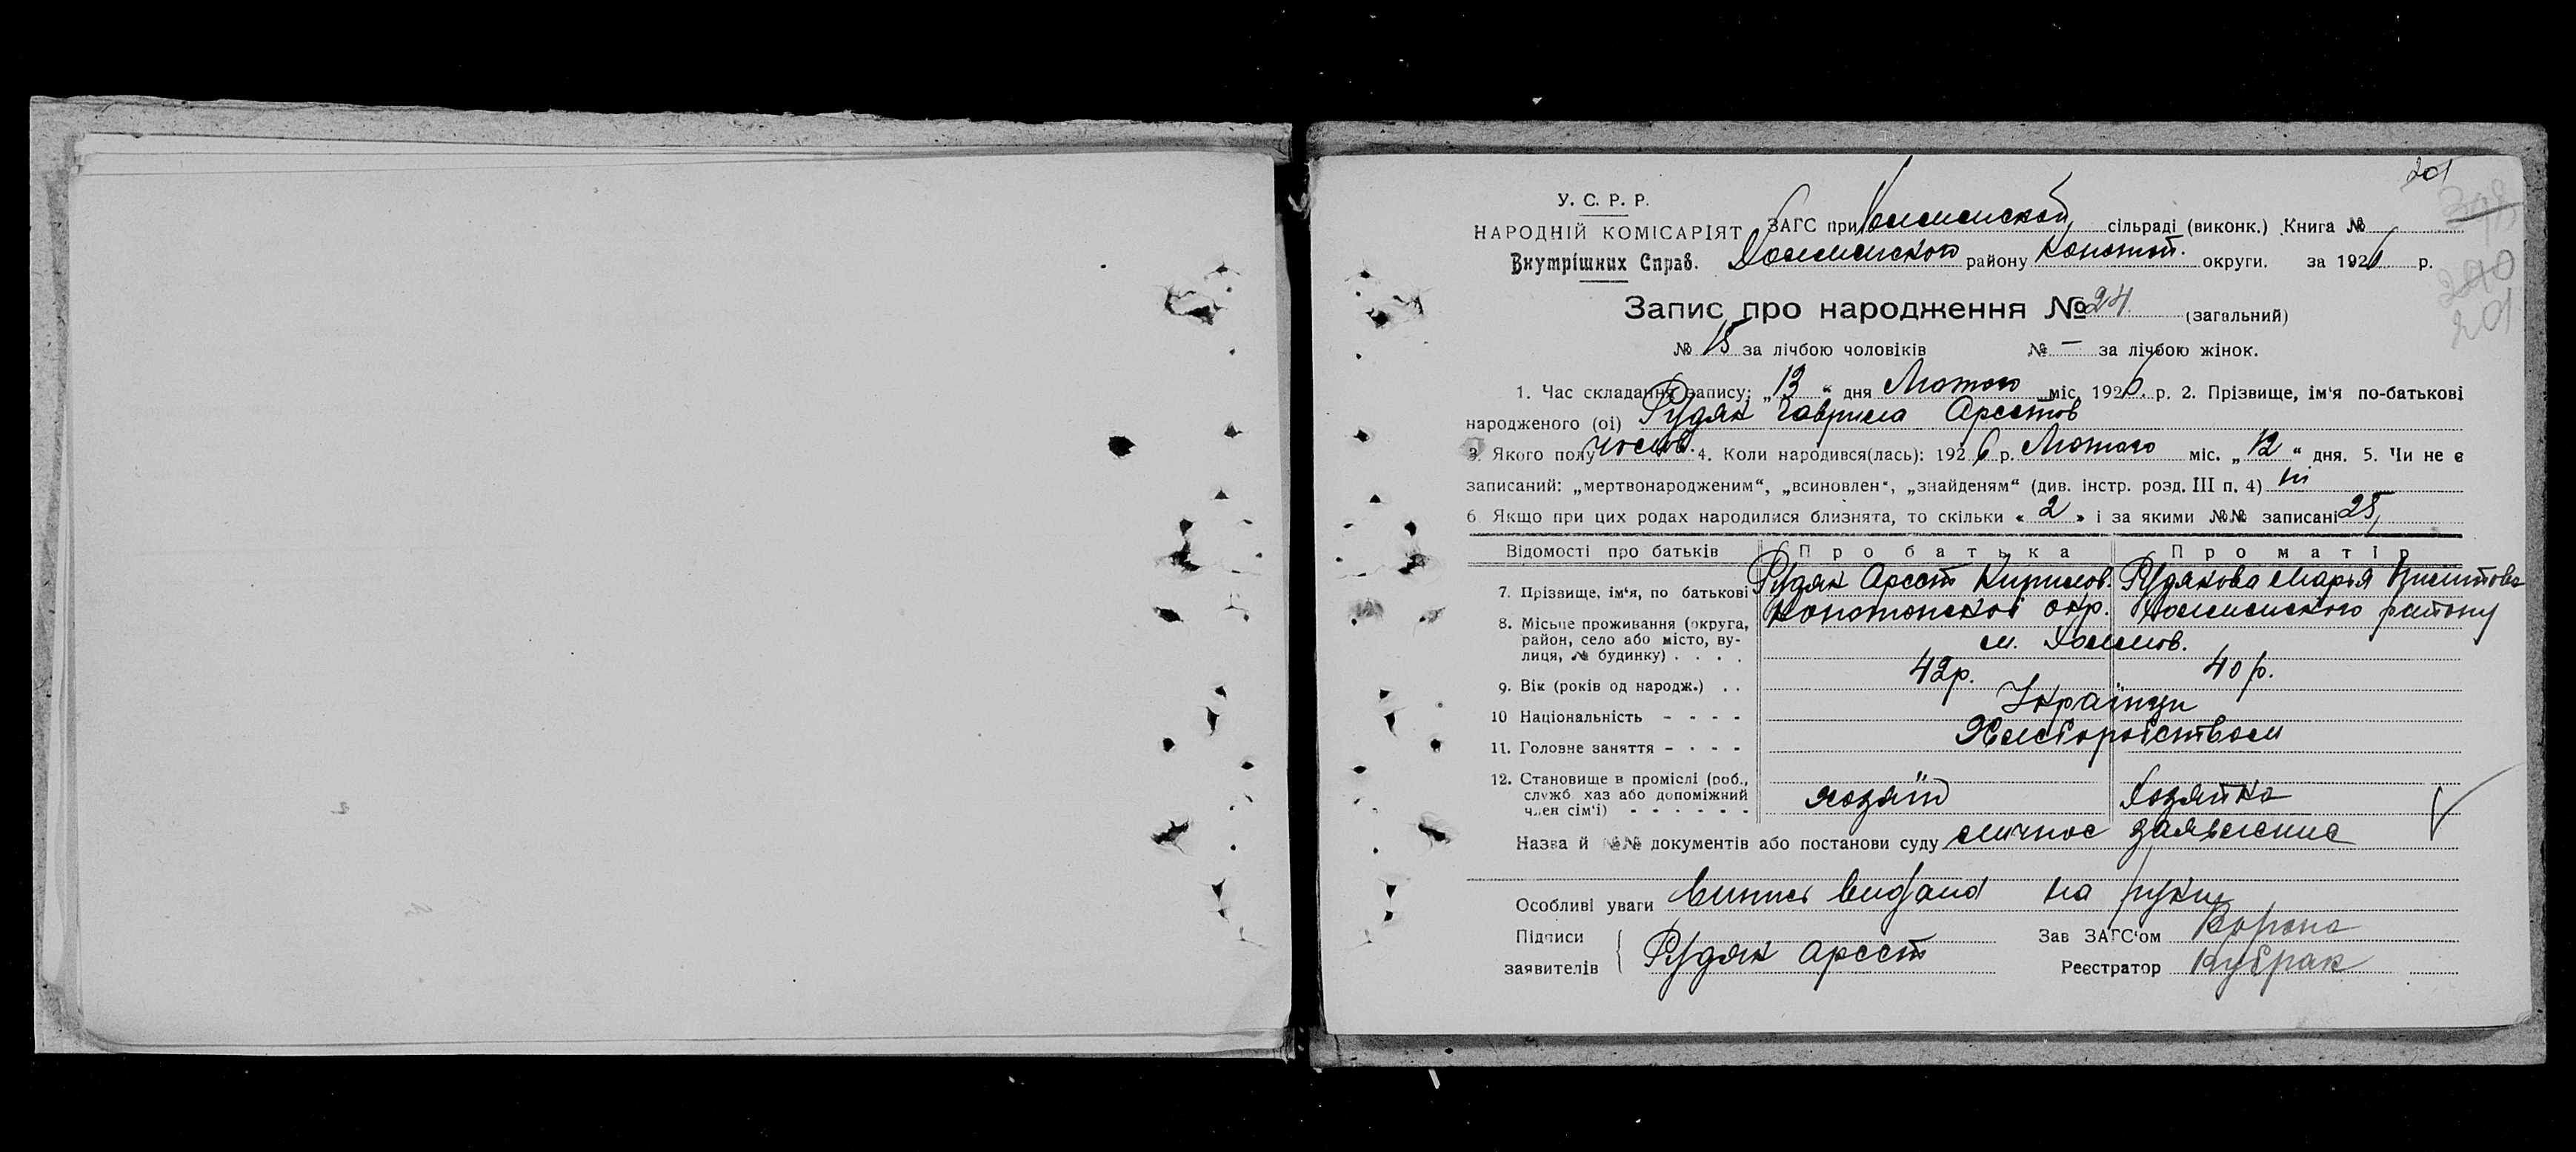 201
348
У. С. Р. Р.
НАРОДНІЙ КОМІСАРІЯТ
Внутрішних Справ.
ЗАГС при сільраді (виконк.) Книга №
району Конотоп. округи. за 1926 р.
240
201
Запис про народження № 24. (загальний)
№ 15 за лічбою чоловіків № — за лічбою жінок.
1. Час складання запису: „13“ дня Лютого міс. 1926. р. 2. Прізвище, ім'я по-батькові
народженого (ої) Рудяк Гаврила Арестов
3. Якого полу чолов. 4. Коли народився(лась): 1926 р. Лютого міс. „12“ дня. 5. Чи не є
записаний: „мертвонародженим“, „всиновлен“, „знайденям“ (див. інстр. розд. III п. 4) ні
6 Якщо при цих родах народилися близнята, то скільки «2» і за якими №№ записані 25,
Відомості про батьків Про батька Про матір
7. Прізвище, ім'я, по батькові Рудяк Арест Кирилов. Рудякова Марья
8. Місьце проживання (округа, Конотопскої окр. району
район, село або місто, ву-
лиця, № будинку) . . . . м.
9. Вік (років од народж.) . . 42р. 40 р.
10 Національність - - - - Українци
11. Головне заняття - - - - Хліборобством
12. Становище в промислі (роб.,
служб хаз або допоміжний хозяїн Хозяйка
член сім'ї) - - - - - -
Назва й №№ документів або постанови суду личное заявление
Особливі уваги на руки
Підписи
заявителів Рудяк Арест
Зав ЗАГС'ом Ворона
Реєстратор Кубрак